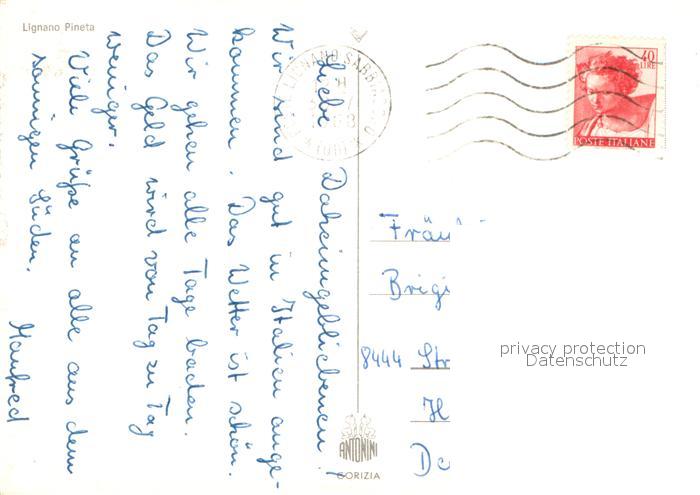 Lignano Pineta
Liebe Daheimgebliebenen!
Wir sind gut in Italien ange-
kommen. Das Wetter ist schön.
Wir gehen alle Tage baden.
Das Geld wird von Tag zu Tag
weniger.
Viele Grüße an alle aus dem
sonnigen Süden.
Manfred
LIGNANO SABBI
40
LIRE
POSTE ITALIANE
Fräu
Brigi
8444 Str
H
De
privacy protection
Datenschutz
ANTONINI
GORIZIA